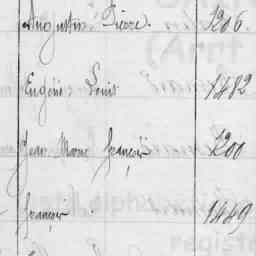 Augustin Pierre. 1206.
Eugène Louis 1482
Jean Marie François 1200
François 1449